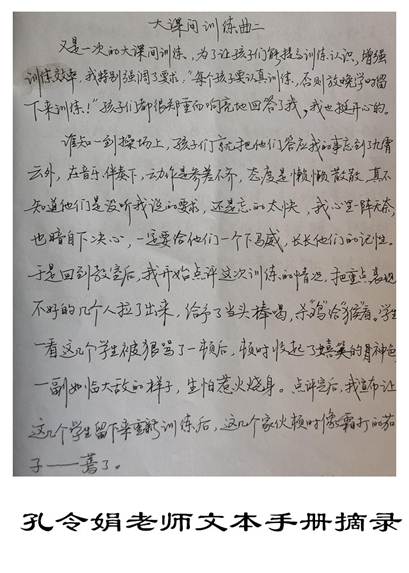 大课间训练曲二
又是一次的大课间训练，为了让孩子们能提高训练认识，增强
训练效率，我特别强调了要求，"每个孩子要认真训练，否则放晚学时留
下来训练！"孩子们都很郑重而响亮地回答了我，我也挺开心的。
谁知一到操场上，孩子们就把他们答应我的事忘到了九霄
云外，在音乐伴奏下，动作是参差不齐，态度是懒懒散散，真不
知道他们是没听我说的要求，还是忘的太快，我心里一阵无奈，
也暗自下决心，一定要给他们一个下马威，长长他们的记性。
于是回到教室后，我开始点评这次训练的情况，把重点表现
不好的几个人拉了出来，给予了当头棒喝，杀"鸡"给"猴"看。学生
一看这几个学生被狠骂了一顿后，顿时收起了嬉笑的神色
一副如临大敌的样子，生怕惹火烧身。点评完后，我宣布让
这几个学生留下来重新训练后，这几个家伙顿时像霜打的茄
子——蔫了。
孔令娟老师文本手册摘录